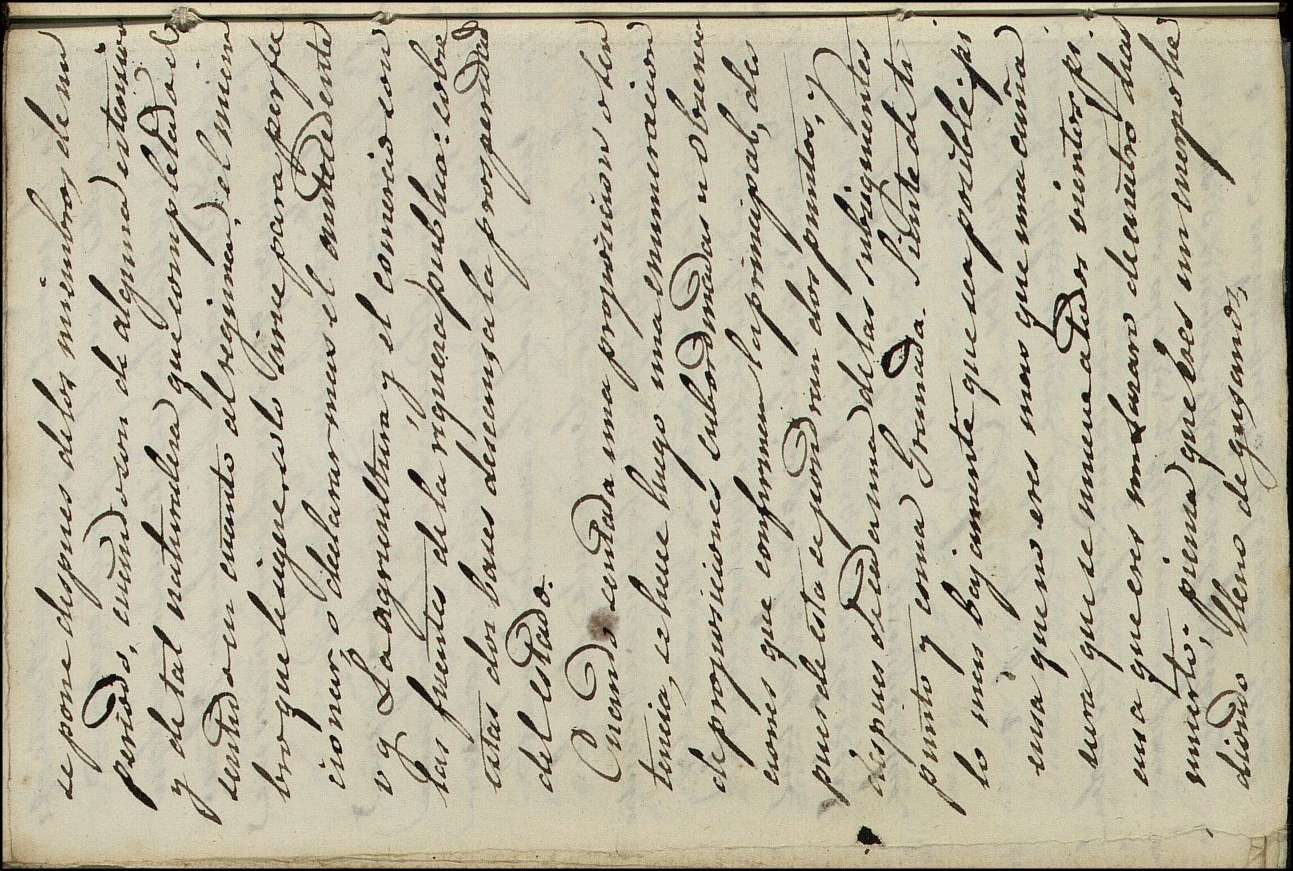 se pone despues de los miembros de un
periodo, cuando son de alguna estension
y de tal naturaleza que completado el
sentido en cuanto al regimen, el miem
bro que le sigue solo sirve para perfec
cionar o declarar mas el antecedente
v g La agricultura y el comercio son
las fuentes de la riqueza publica: sobre
estas dos bases descansa la prosperidad
del estado.
Cuando, sentada una proposicion o sen
tencia, se hace luego una enumeracion
de proposiciones subordinadas u oracio
ciones que conforman la principal, des
pues de esta se pondran dos puntos, y
despues de cada una de las subsiguientes
punto y coma Granada. Siente de ti
lo mas bajamente que sea posible; pi
ensa que no eres mas que una caña
vera que se mueve a todos vientos; pi
ensa que eres un Lazaro de cuatro dias
muerto; piensa que eres un cuerpo he
diondo lleno de gusanos,